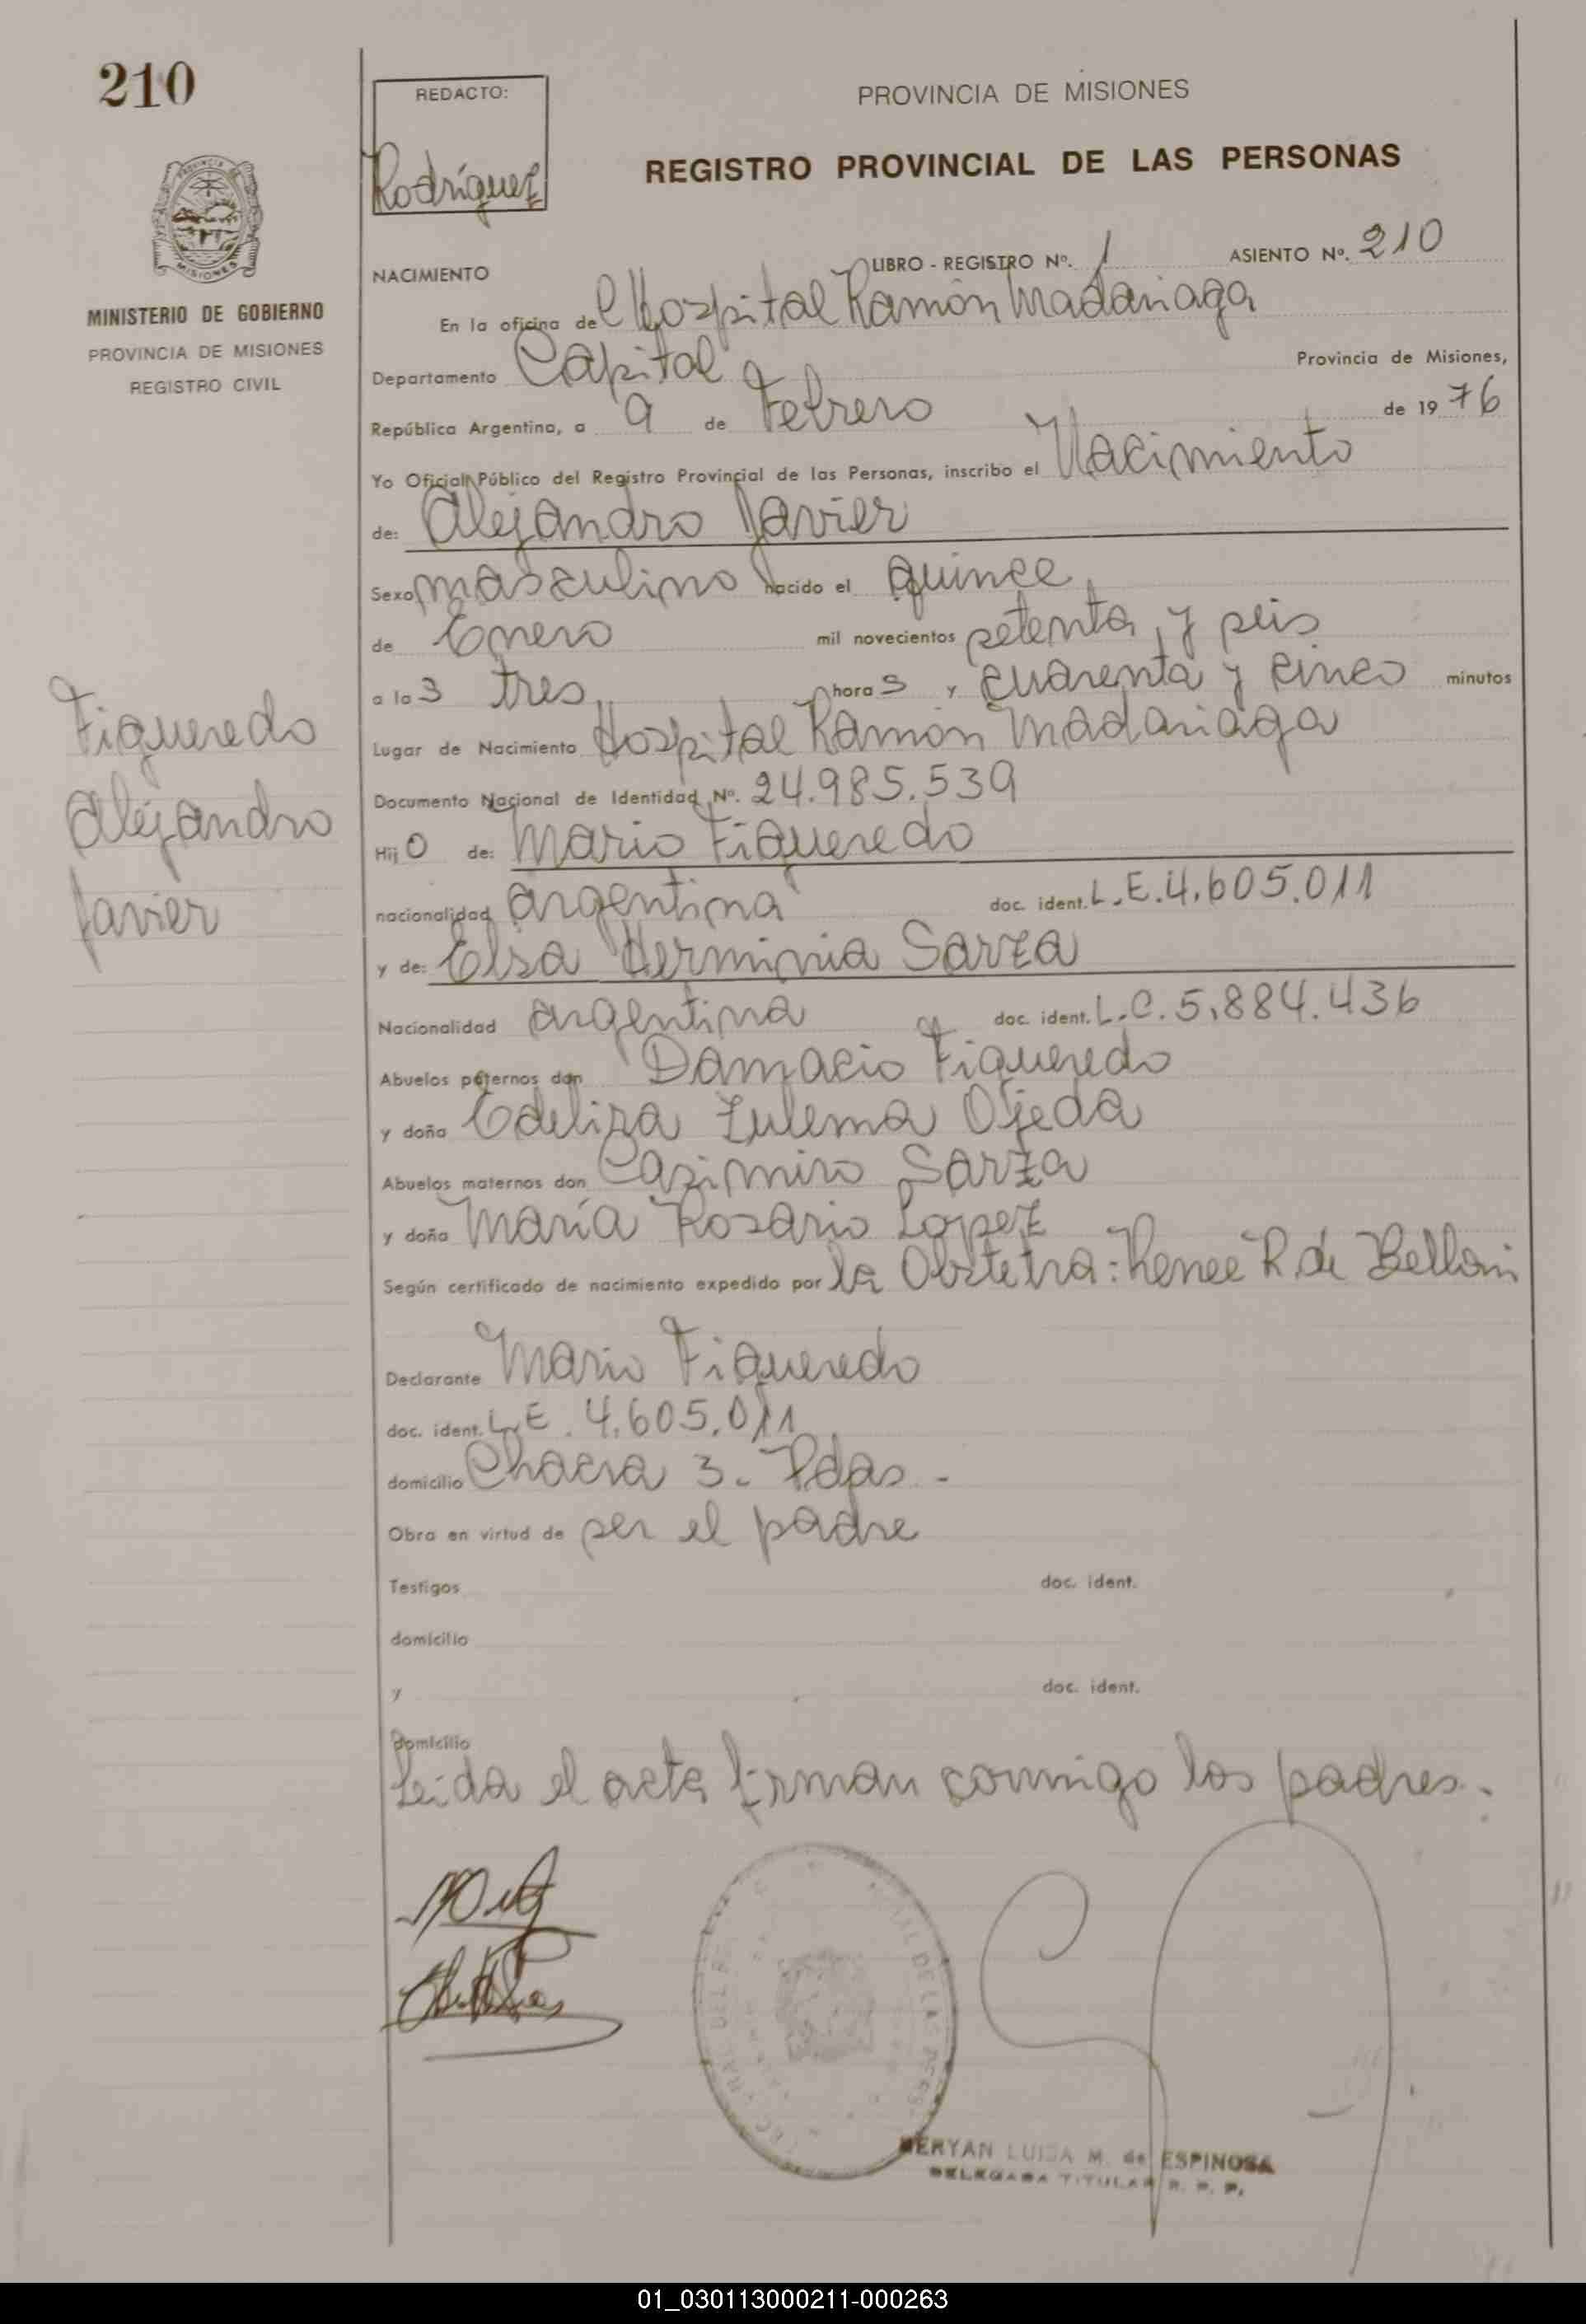 210
REDACTO:
Rodríguez
PROVINCIA DE MISIONES
REGISTRO PROVINCIAL DE LAS PERSONAS
MINISTERIO DE GOBIERNO
PROVINCIA DE MISIONES
REGISTRO CIVIL
NACIMIENTO LIBRO - REGISTRO Nº. 1 ASIENTO Nº. 210
En la oficina del Hospital Ramón Madariaga
Departamento Capital Provincia de Misiones,
República Argentina, a 9 de Febrero de 1976
Yo Oficial Público del Registro Provincial de las Personas, inscribo el Nacimiento
de: Alejandro Javier
Sexo masculino nacido el quince
de Enero mil novecientos setenta y seis
a las tres horas y cuarenta y cinco minutos
Figueredo
Alejandro
Javier
Lugar de Nacimiento Hospital Ramón Madariaga
Documento Nacional de Identidad Nº. 24.985.539
Hijo de: Mario Figueredo
nacionalidad argentina doc. ident. L.E.4.605.011
y de: Elsa Herminia Sarza
Nacionalidad argentina doc. ident. L.C.5.884.436
Abuelos paternos don Damacio Figueredo
y doña Edeliza Zulema Ojeda
Abuelos maternos don Casimiro Sarza
y doña María Rosario Lopez
Según certificado de nacimiento expedido por la Obstetra: Renee R. de Belloni
Declarante Mario Figueredo
doc. ident. L.E. 4.605.011
domicilio Chacra 3. Pdas.-
Obra en virtud de ser el padre
Testigos doc. ident.
domicilio
y doc. ident.
Domicilio
Leida el acta firman conmigo los padres.
MERYAN LUISA M. de ESPINOSA
DELEGADA TITULAR R. P. P.
01_030113000211-000263